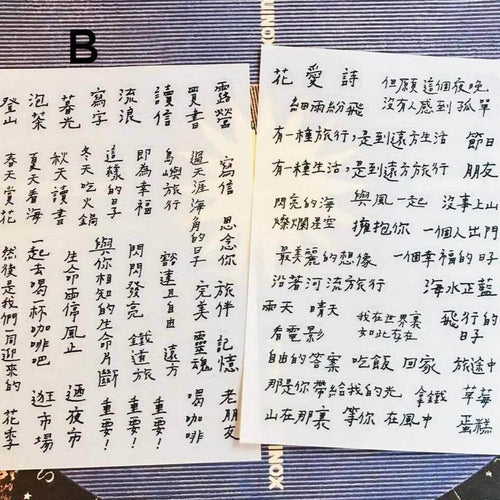 B
露營 寫信 思念你 旅伴 記憶 老朋友
買書 過天涯海角的日子 完美 靈魂 喝咖啡
讀信 島嶼旅行 豁達且自由 遠方 重要!
流浪 即為幸福 閃閃發亮 鐵道旅 重要!
寫字 這樣的日子 與你相知的生命片斷 重要!
暮光 冬天吃火鍋 生命雨停風止 夜市
秋天讀書
泡茶 夏天看海 一起去喝一杯咖啡吧 逛市場
登山 春天賞花 然後是我們同迎來的 花季
花 愛 詩 但願這個夜晚
細雨紛飛 沒有人感到孤單
有一種旅行,是到遠方生活 節日
有一種生活,是到遠方旅行 朋友
閃亮的海 與風一起 沒事上山
燦爛星空 擁抱你 一個人出門
最美麗的想像 一個幸福的日子
沿著河流旅行 海水正藍
雨天 晴天 我在世界裏 飛行的
看電影 如此存在 日子
自由的答案 吃飯 回家 旅途中
那是你帶給我的光 拿鐵 草莓
山在那裏 等你 在風中 蛋糕
UNIQX